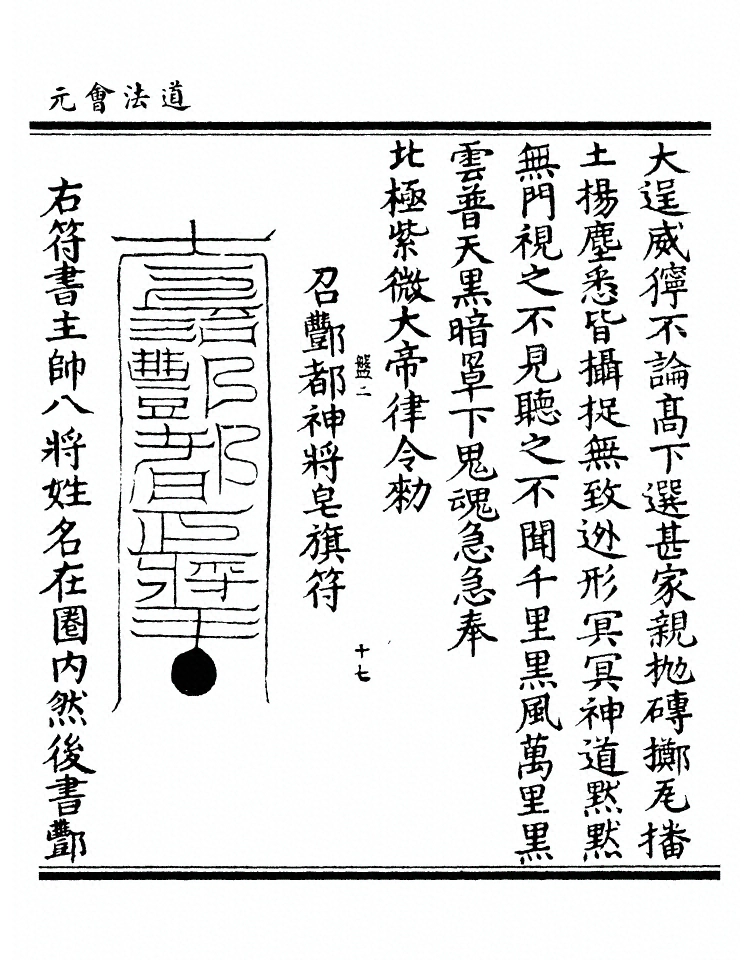 道法會元
大逞威獰不論髙下選甚家親抛磚擲瓦播
土揚塵悉皆攝捉無致迯形冥冥神道黙黙
無門視之不見聽之不聞千里黒風萬里黒
雲普天黒暗罩下鬼魂急急奉
北極紫微大帝律令勑
盤二
十七
召酆都神將皂旗符
右符書主帥八將姓名在圏内然後書酆